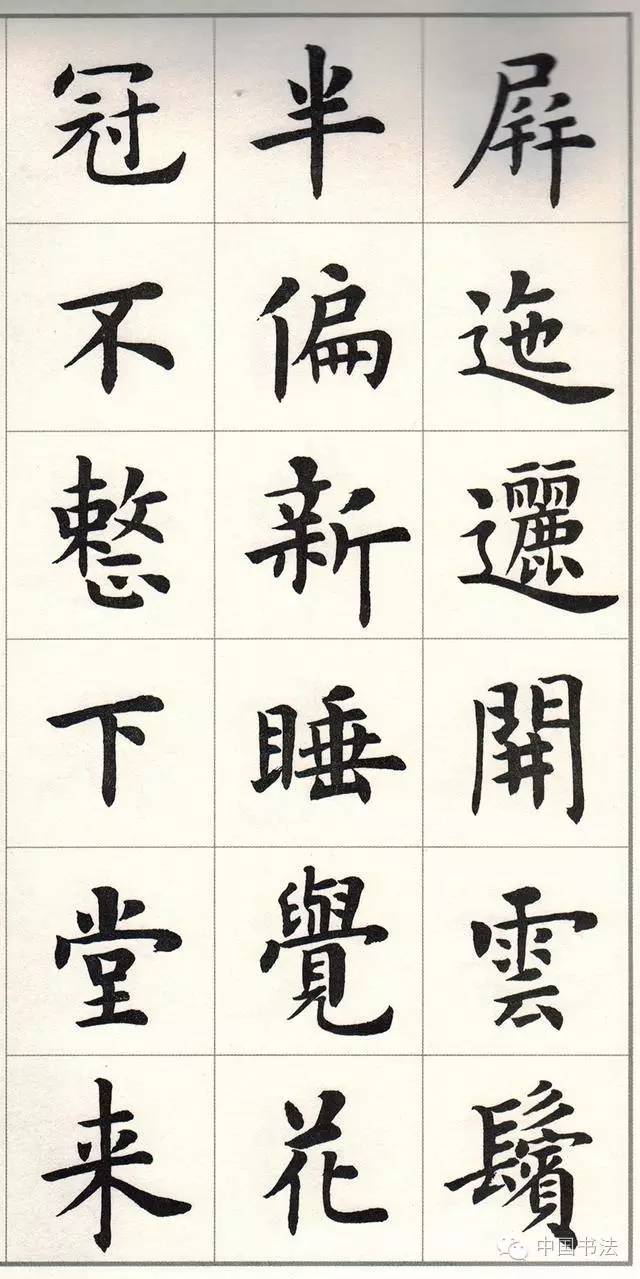 屏迤邐開雲鬢
半偏新睡覺花
冠不整下堂来
中国书法